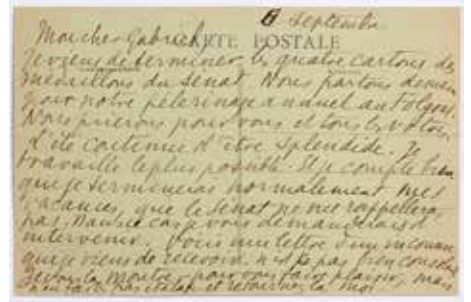 6 septembre
CARTE POSTALE
Mon cher Gabriel
Je viens de terminer les quatre cartons des
médaillons du Sénat Nous partons demain
pour notre pèlerinage annuel au Folgoët.
Nous prierons pour vous et tous les vôtres
L'été continue d'être splendide. Je
travaille le plus possible. Et je compte bien
que je terminerai normalement mes
vacances, que le Sénat ne me rappellera
pas. Dans ce cas à vous demanderais d'
intervenir. Vous une lettre d'un inconnu
que je viens de recevoir. n'est-ce pas bien
Je vous la montre pour vous faire plaisir, mais
et retournez la moi